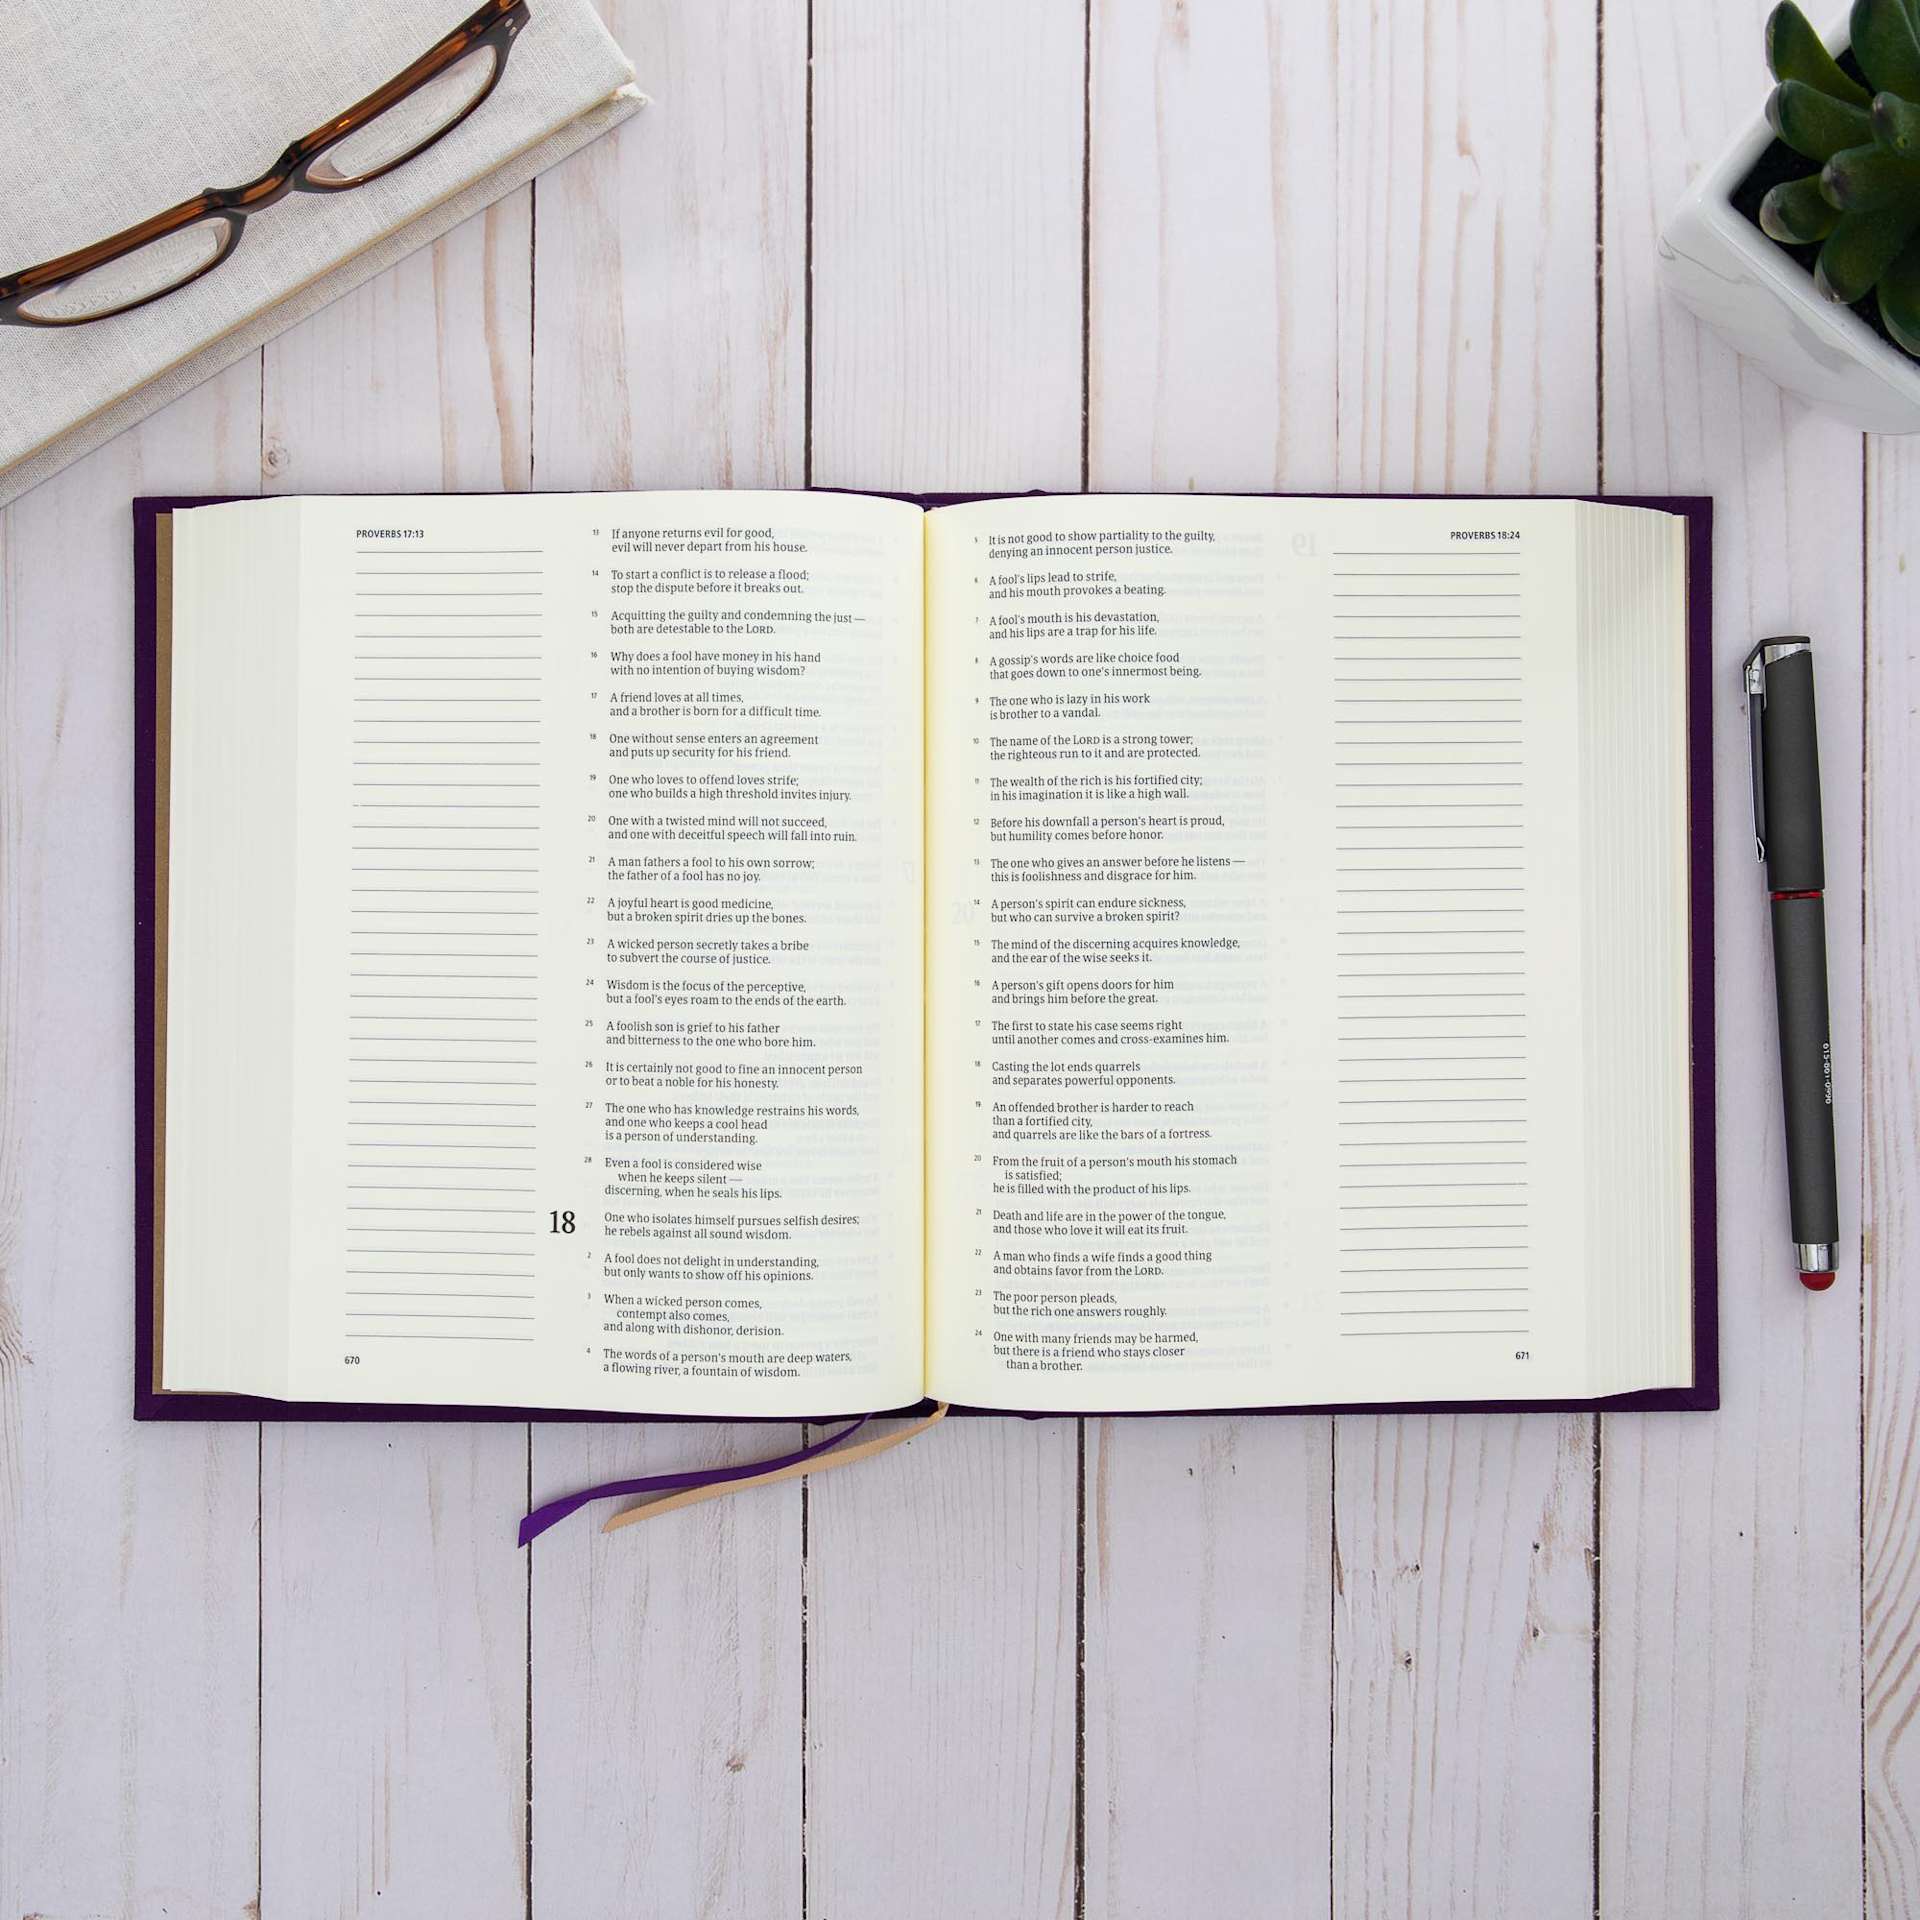 PROVERBS 17:13
13 If anyone returns evil for good,
evil will never depart from his house.
14 To start a conflict is to release a flood;
stop the dispute before it breaks out.
15 Acquitting the guilty and condemning the just —
both are detestable to the LORD.
16 Why does a fool have money in his hand
with no intention of buying wisdom?
17 A friend loves at all times,
and a brother is born for a difficult time.
18 One without sense enters an agreement
and puts up security for his friend.
19 One who loves to offend loves strife;
one who builds a high threshold invites injury.
20 One with a twisted mind will not succeed,
and one with deceitful speech will fall into ruin.
21 A man fathers a fool to his own sorrow;
the father of a fool has no joy.
22 A joyful heart is good medicine,
but a broken spirit dries up the bones.
23 A wicked person secretly takes a bribe
to subvert the course of justice.
24 Wisdom is the focus of the perceptive,
but a fool's eyes roam to the ends of the earth.
25 A foolish son is grief to his father
and bitterness to the one who bore him.
26 It is certainly not good to fine an innocent person
or to beat a noble for his honesty.
27 The one who has knowledge restrains his words,
and one who keeps a cool head
is a person of understanding.
28 Even a fool is considered wise
when he keeps silent —
discerning, when he seals his lips.
18 One who isolates himself pursues selfish desires;
he rebels against all sound wisdom.
2 A fool does not delight in understanding,
but only wants to show off his opinions.
3 When a wicked person comes,
contempt also comes,
and along with dishonor, derision.
4 The words of a person's mouth are deep waters,
a flowing river, a fountain of wisdom.
670
PROVERBS 18:24
5 It is not good to show partiality to the guilty,
denying an innocent person justice.
6 A fool's lips lead to strife,
and his mouth provokes a beating.
7 A fool's mouth is his devastation,
and his lips are a trap for his life.
8 A gossip's words are like choice food
that goes down to one's innermost being.
9 The one who is lazy in his work
is brother to a vandal.
10 The name of the LORD is a strong tower;
the righteous run to it and are protected.
11 The wealth of the rich is his fortified city;
in his imagination it is like a high wall.
12 Before his downfall a person's heart is proud,
but humility comes before honor.
13 The one who gives an answer before he listens —
this is foolishness and disgrace for him.
14 A person's spirit can endure sickness,
but who can survive a broken spirit?
15 The mind of the discerning acquires knowledge,
and the ear of the wise seeks it.
16 A person's gift opens doors for him
and brings him before the great.
17 The first to state his case seems right
until another comes and cross-examines him.
18 Casting the lot ends quarrels
and separates powerful opponents.
19 An offended brother is harder to reach
than a fortified city,
and quarrels are like the bars of a fortress.
20 From the fruit of a person's mouth his stomach
is satisfied;
he is filled with the product of his lips.
21 Death and life are in the power of the tongue,
and those who love it will eat its fruit.
22 A man who finds a wife finds a good thing
and obtains favor from the LORD.
23 The poor person pleads,
but the rich one answers roughly.
24 One with many friends may be harmed,
but there is a friend who stays closer
than a brother.
671
615-861-0996